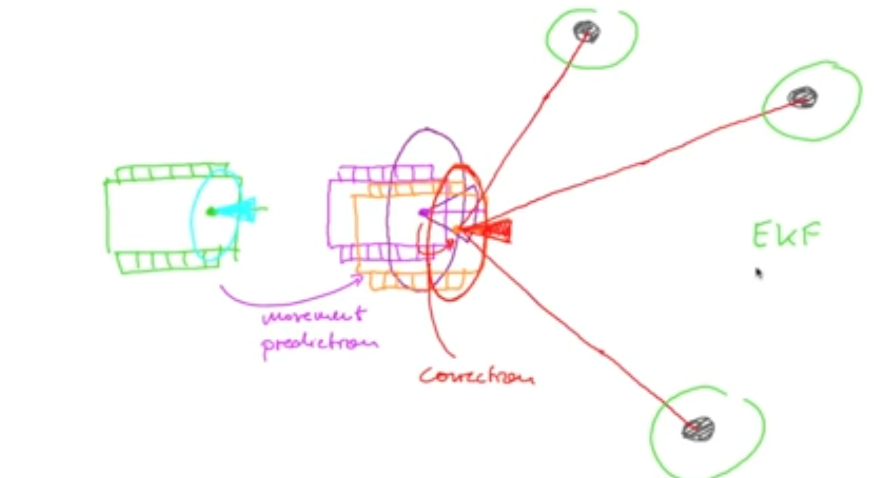 EKF
movement
prediction
correction